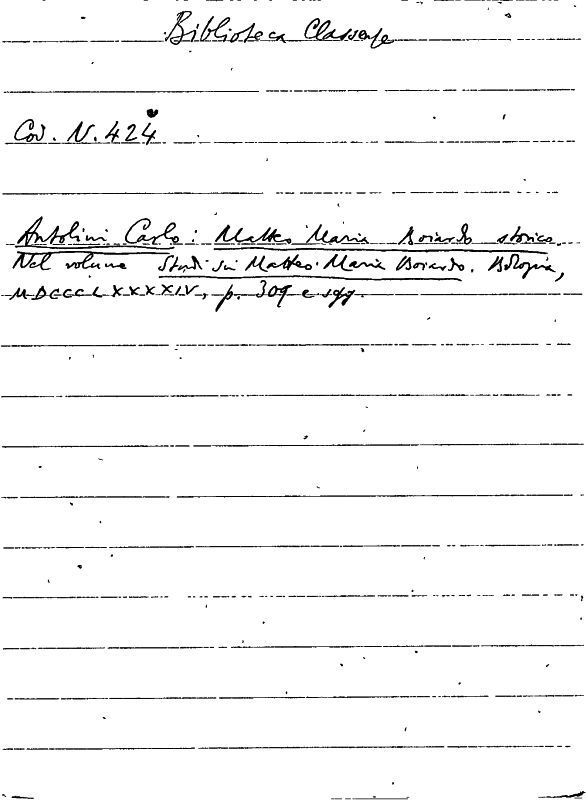 Biblioteca Classense
Cod. N. 424
Antolini Carlo: Matteo Maria Boiardo storico.
Nel volume Studi su Matteo Maria Boiardo. Bologna,
MDCCCLXXXXIV, p. 309 e sgg.